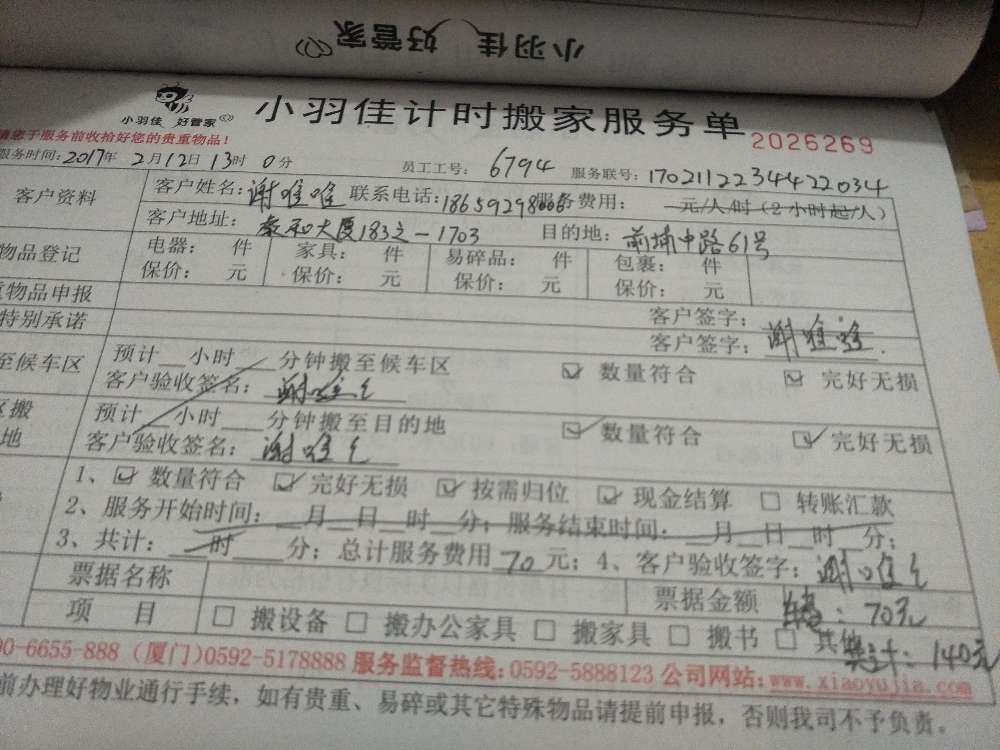 小羽佳 好管家
小羽佳 好管家
小羽佳计时搬家服务单 2026269
请您于服务前收拾好您的贵重物品！
服务时间：2017年2月12日13时0分 员工工号：6794 服务联号：1702112234422034
客户资料 客户姓名：谢唯唯 联系电话：18659298666 服务费用： 元/人/时（2小时起/人）
客户地址：泰和大厦183之-1703 目的地：前埔中路61号
物品登记 电器： 件 家具： 件 易碎品： 件 包裹： 件
保价： 元 保价： 元 保价： 元 保价： 元
物品申报 客户签字：
特别承诺 客户签字：谢唯唯
至候车区 预计 小时 分钟搬至候车区 数量符合 完好无损
客户验收签名：谢唯唯
搬 预计 小时 分钟搬至目的地 数量符合 完好无损
地 客户验收签名：谢唯唯
1、 数量符合 完好无损 按需归位 现金结算 转账汇款
2、服务开始时间： 月 日 时 分；服务结束时间： 月 日 时 分；
3、共计： 时 分；总计服务费用70元；4、客户验收签字：谢唯唯
票据名称 票据金额 ：70元
项 目 搬设备 搬办公家具 搬家具 搬书 其他 共计：140元
0-6655-888（厦门）0592-5178888 服务监督热线：0592-5888123 公司网站：www.xiaoyujia.com
前办理好物业通行手续，如有贵重、易碎或其它特殊物品请提前申报，否则我司不予负责。